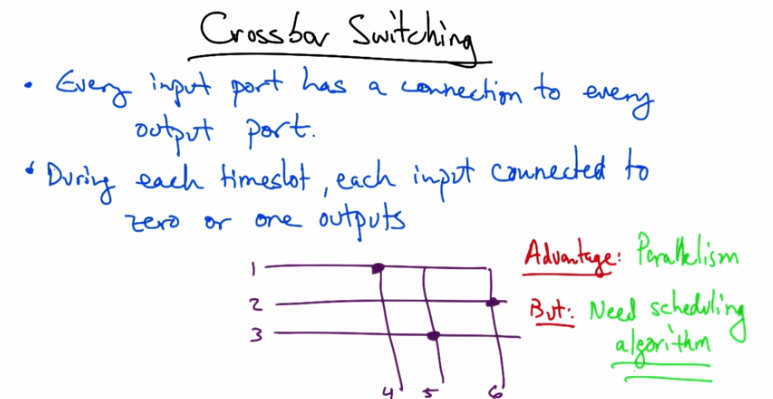 Crossbar Switching
• Every input port has a connection to every
output port.
• During each timeslot, each input connected to
zero or one outputs
Advantage: Parallelism
But: Need scheduling
algorithm
1
2
3
4 5 6